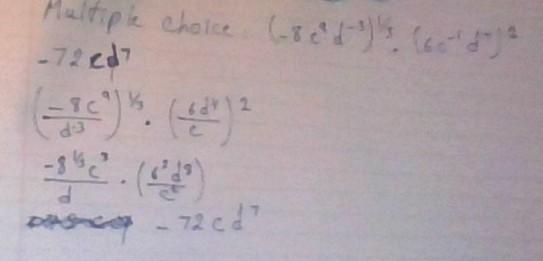 Multiple choice. (-8c⁹d⁻³)^⅓ · (6c⁻¹d⁴)²
-72cd⁷
(-8c⁹/d-3)^⅓ · (6d⁴/c)²
-8^⅓c³/d · (6²d⁸/c²)
-72cd⁷